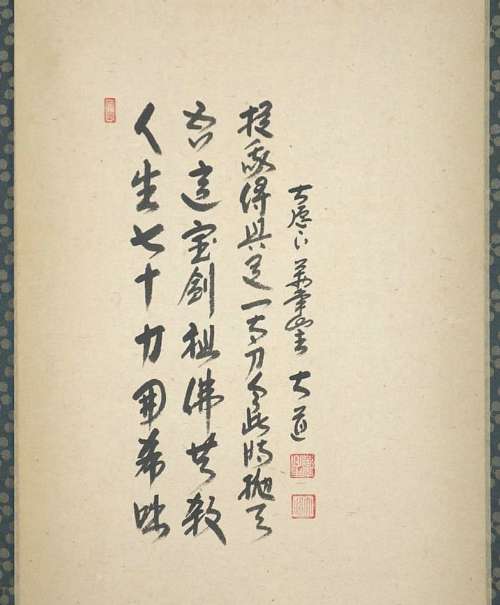 人生七十力囲希咄
吾這宝劍祖佛共殺
提我得具足一太刀今此時抛天
大道